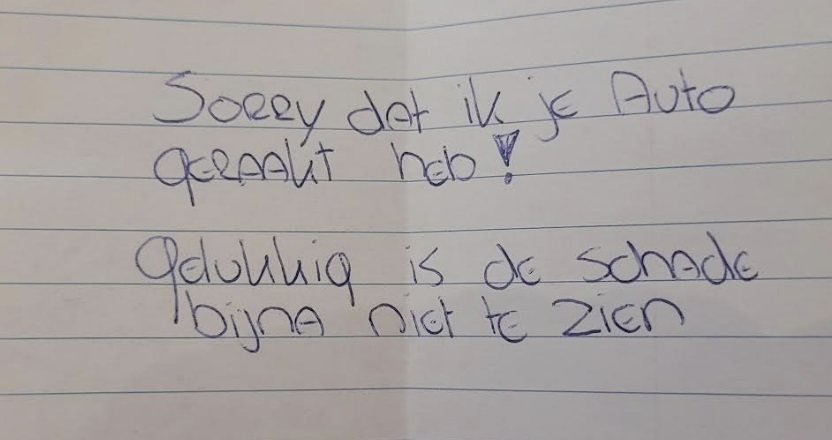 Sorry dat ik je Auto
geraakt heb!
Gelukkig is de schade
bijna niet te zien